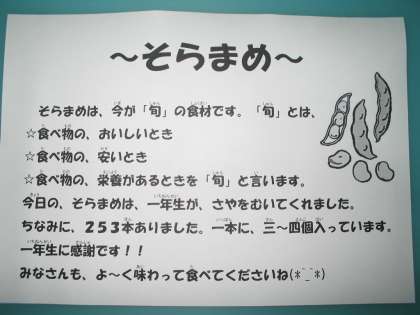 ～そらまめ～
そらまめは、今が「旬」の食材です。「旬」とは、
☆食べ物の、おいしいとき
☆食べ物の、安いとき
☆食べ物の、栄養があるときを「旬」と言います。
今日の、そらまめは、一年生が、さやをむいてくれました。
ちなみに、２５３本ありました。一本に、三～四個入っています。
一年生に感謝です！！
みなさんも、よ～く味わって食べてくださいね(*^_^*)